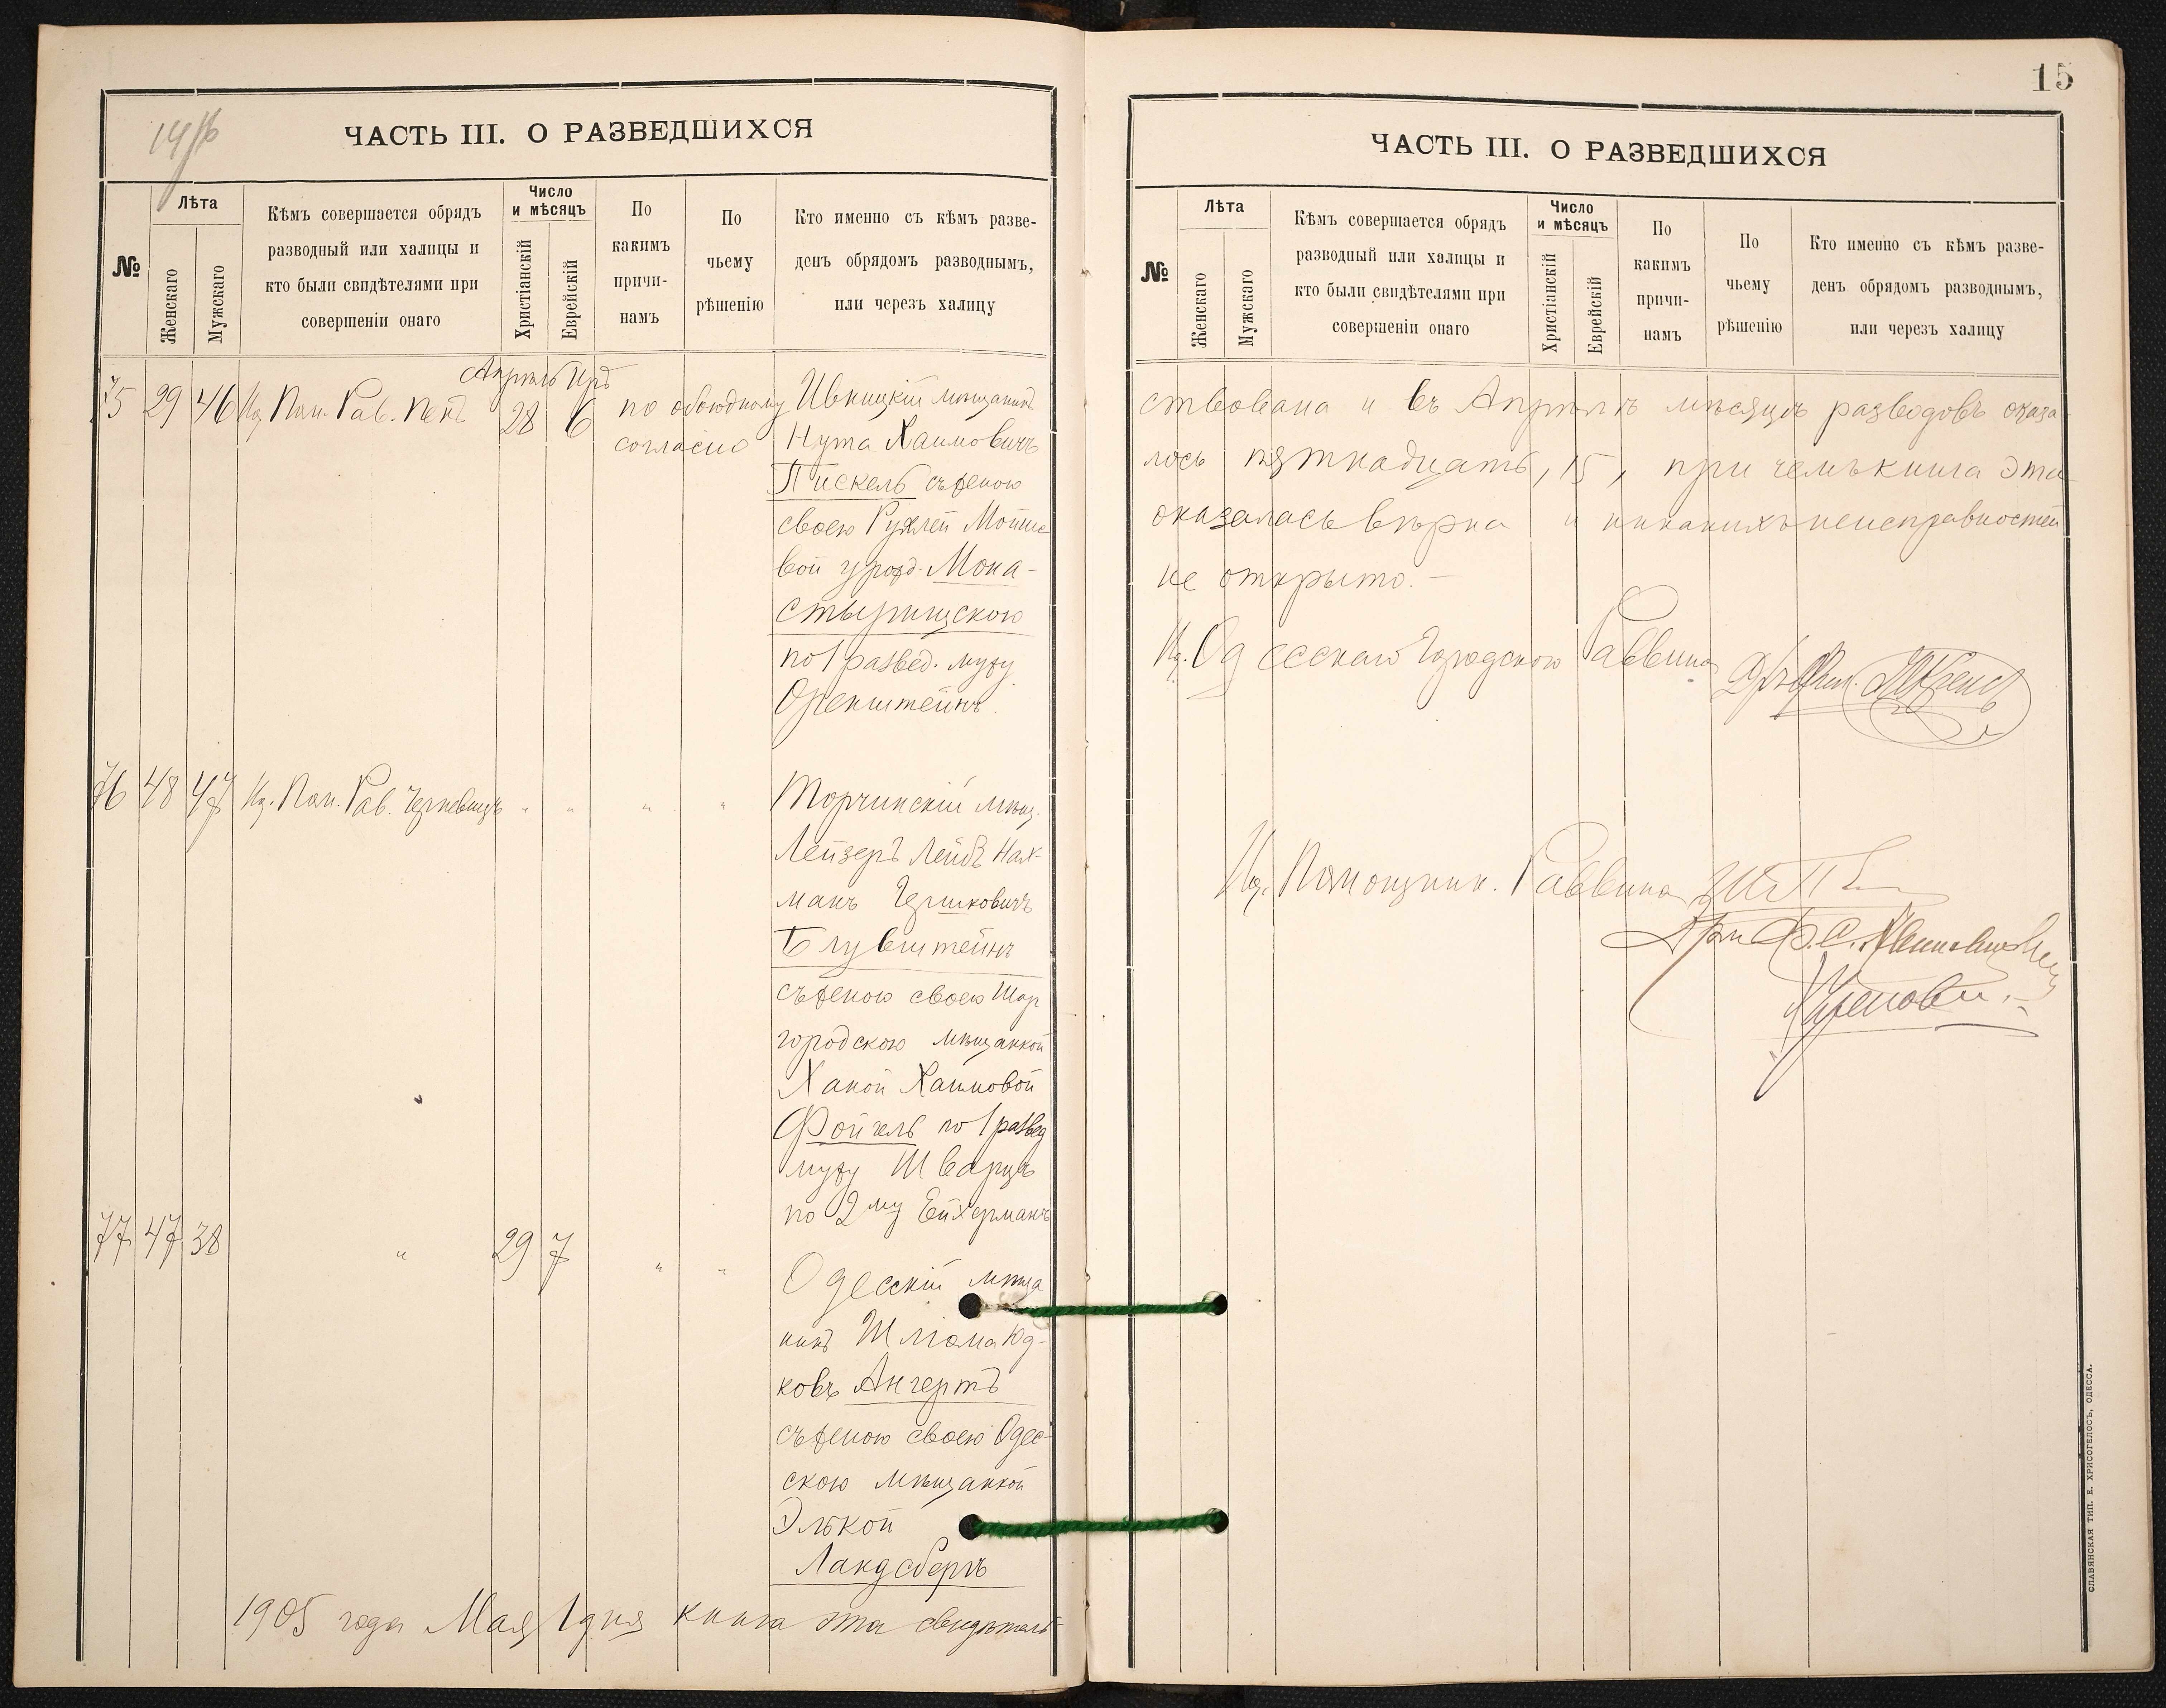 ЧАСТЬ III. О РАЗВЕДШИХСЯ
№
Лѣта
Женскаго
Мужскаго
Кѣмъ совершается обрядъ
разводный или халицы и
кто были свидѣтелями при
совершеніи онаго
Число
и мѣсяцъ
Христіанскій
Еврейскій
По
какимъ
причи-
намъ
По
чьему
рѣшенію
Кто именно съ кѣмъ разве-
денъ обрядомъ разводнымъ,
или черезъ халицу
Апрѣль Иръ
75 29 46 Ид. Пом. Рав. Пенъ 28 6 по обоюдному
согласію
Ивницкій мѣщанинъ
Нута Хаимовичъ
Пискель съ женою
своею Рухлей Мошко
вой урожд. Мона-
стырищскою
по 1 развед. мужу
Оренштейнъ
76 48 47 Ид. Пом. Рав. " " " "
Торчинскій мѣщ.
Лейзеръ Лейбъ Нах-
манъ Гершковичъ
Блувштейнъ
съ женою своею Шар
городскою мѣщанкой
Ханой Хаимовой
Фойгель по 1 развед
мужу Шварцъ
по 2му Ейхерманъ
77 47 38 " 29 7 " "
Одесскій мѣща
нинъ Шліома Юд-
ковъ Ангертъ
съ женою своею Одес-
скою мѣщанкой
Элькой
Ландсбергъ
1905 года Мая 1 дня книга эта свидѣтель-
15
ЧАСТЬ III. О РАЗВЕДШИХСЯ
№
Лѣта
Женскаго
Мужскаго
Кѣмъ совершается обрядъ
разводный или халицы и
кто были свидѣтелями при
совершеніи онаго
Число
и мѣсяцъ
Христіанскій
Еврейскій
По
какимъ
причи-
намъ
По
чьему
рѣшенію
Кто именно съ кѣмъ разве-
денъ обрядомъ разводнымъ,
или черезъ халицу
ствована и въ Апрѣлѣ мѣсяцѣ разводовъ оказа-
лось пятнадцать, 15, при чемъ книга эта
оказалась вѣрна и никакихъ неисправностей
не открыто.-
Ид. Одесскаго Городского Раввина
Ид. Помощник. Раввина
СЛАВЯНСКАЯ ТИП. Е. ХРИСОГЕЛОСЪ, ОДЕССА.